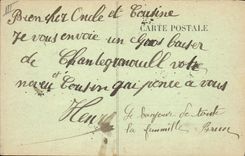 Bien cher Oncle et Cousine
CARTE POSTALE
Je vous envoie un Gros Baiser
de Chantegrenouill votre
neveu et Cousin qui pense à vous
Henri
Le bonjour de toute
la famille